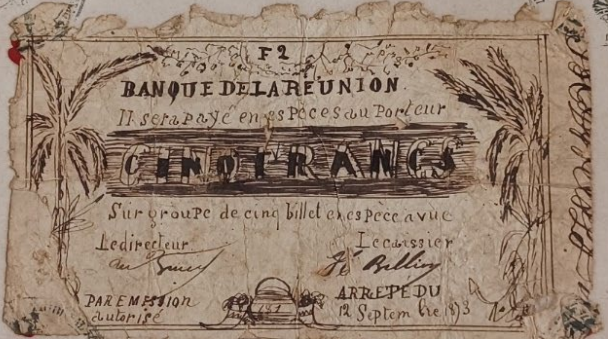 F 2
BANQUE DE LA RÉUNION
Il sera payé en espèces au Porteur
CINQ FRANCS
Sur groupe de cinq billet en espece a vue
Le directeur
Le caissier
PAR EMISSION
autorisé
431
ARRETÉ DU
12 Septembre 1873